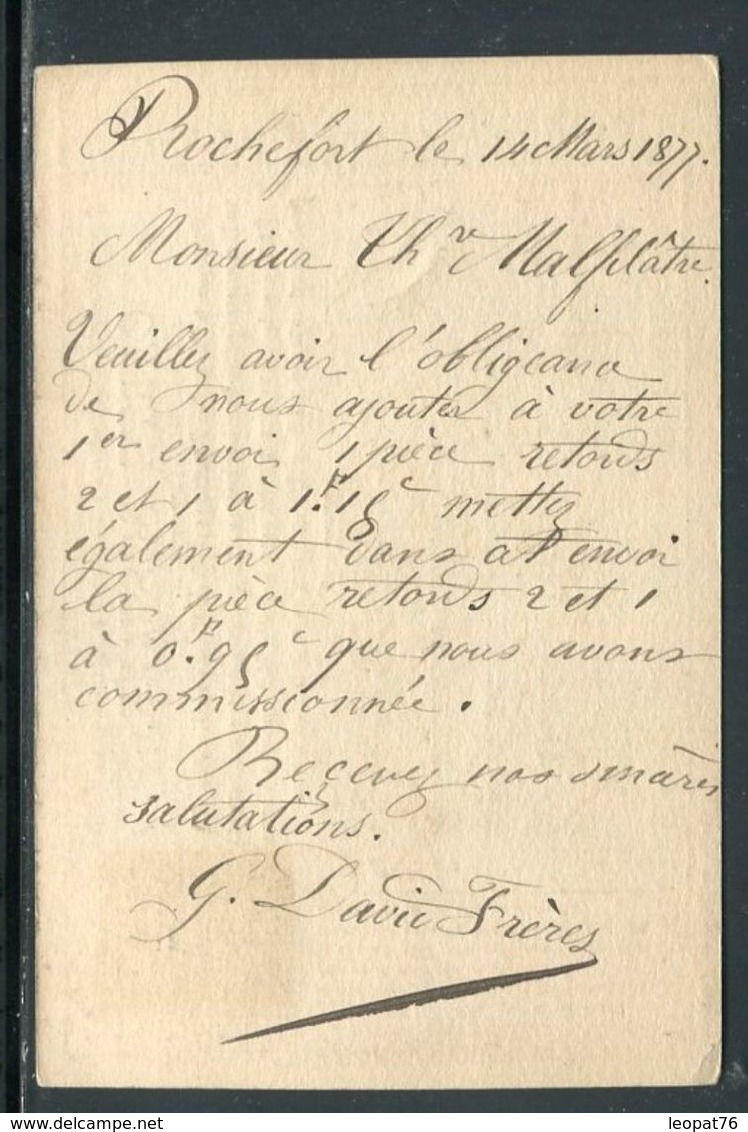 Rochefort le 14 Mars 1877.
Monsieur Th Malplâtre.
Veuillez avoir l'obligeance
de nous ajouter à votre
1er envoi 1 pièce retords
2 et 1 à 1.F15c mettez
également dans cet envoi
la pièce retords 2 et 1
à 0.F95c que nous avons
commissionnée.
Recevez nos sincères
salutations.
G. David Frères
leopat76
delcampe.net